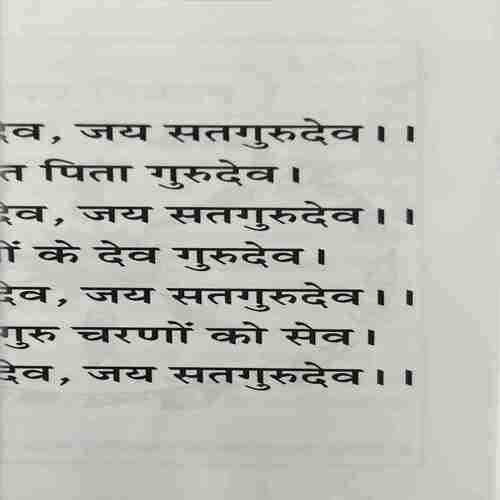 देव, जय सतगुरुदेव।।
त पिता गुरुदेव।
देव, जय सतगुरुदेव।।
ों के देव गुरुदेव।
देव, जय सतगुरुदेव।।
गुरु चरणों को सेव।
देव, जय सतगुरुदेव।।